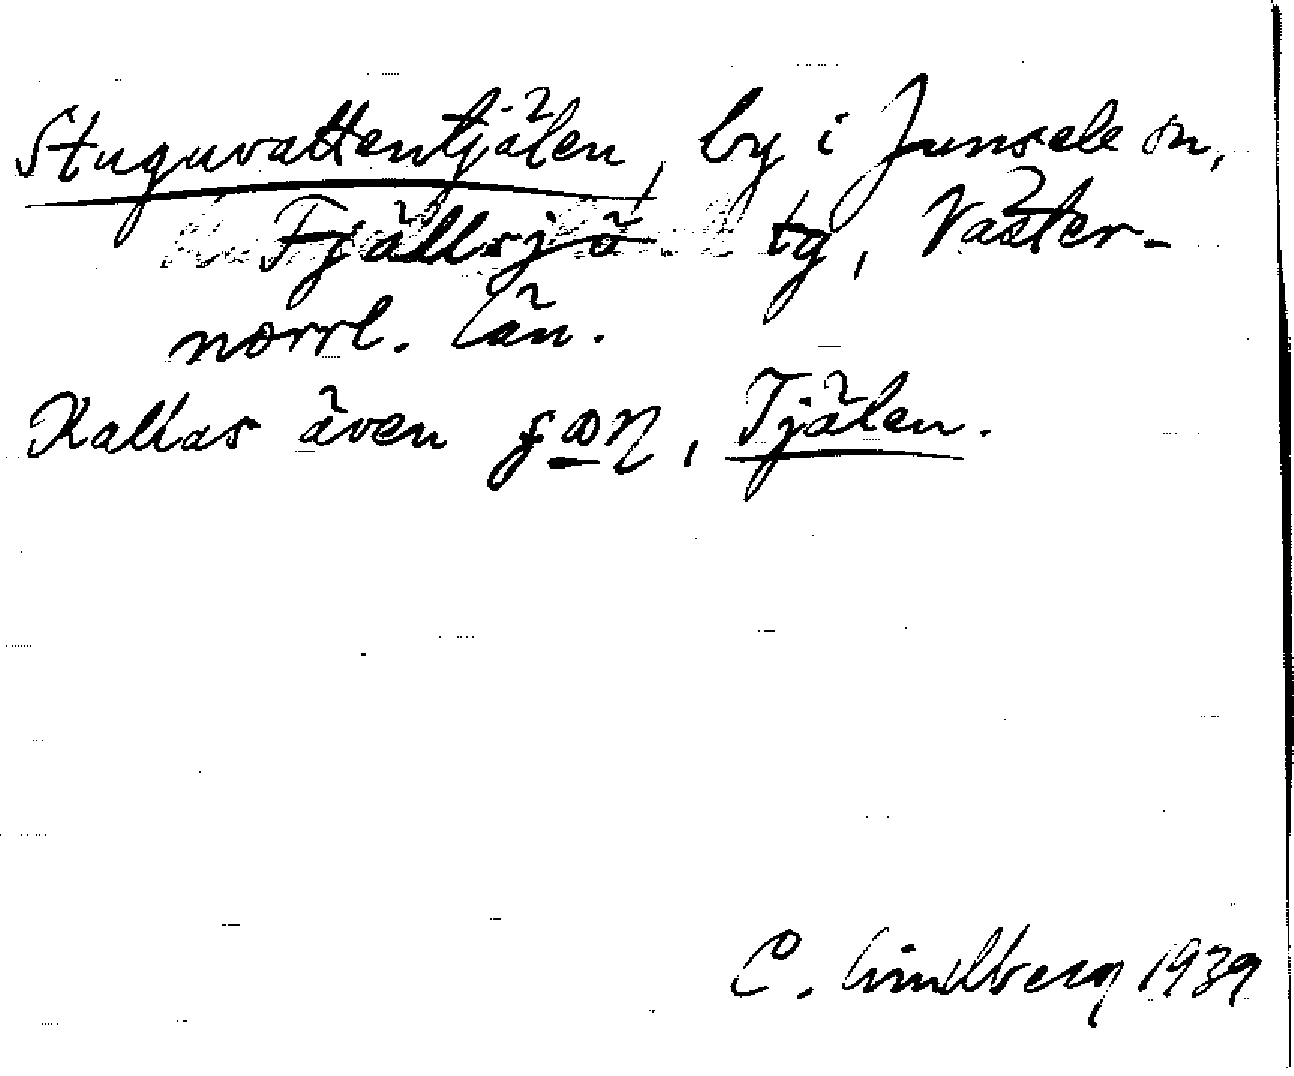 Stuguvattentjälen, by i Junsele sn,
Fjällsjö tg, Väster-
norrl. län.
Kallas även , Tjälen.
C. Lindberg 1939